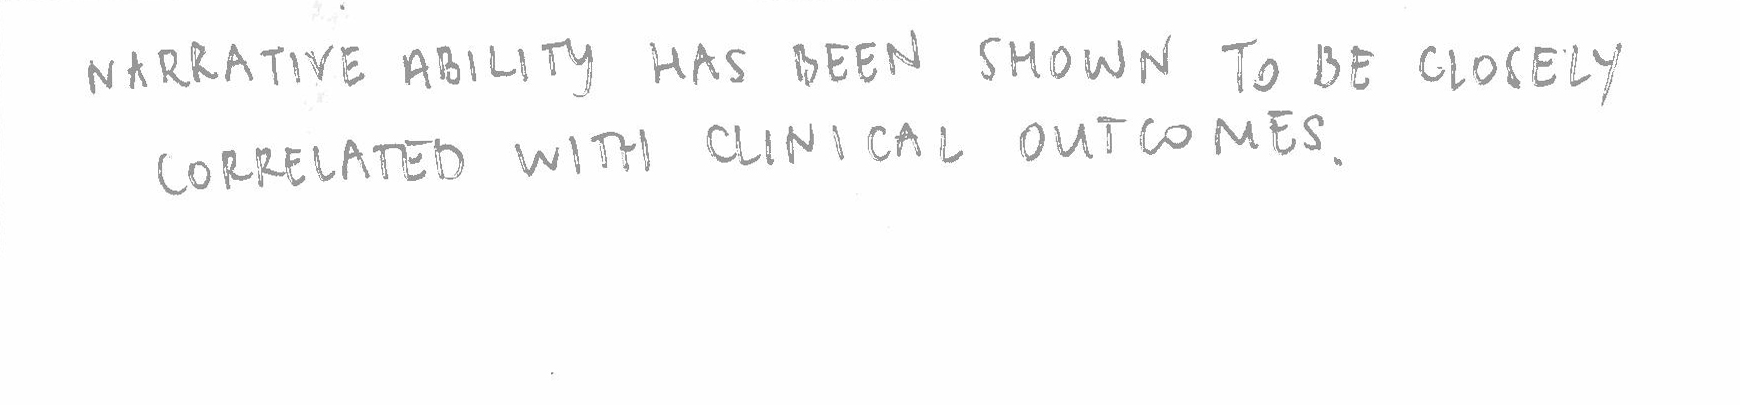 NARRATIVE ABILITY HAS BEEN SHOWN TO BE CLOSELY
CORRELATED WITH CLINICAL OUTCOMES.